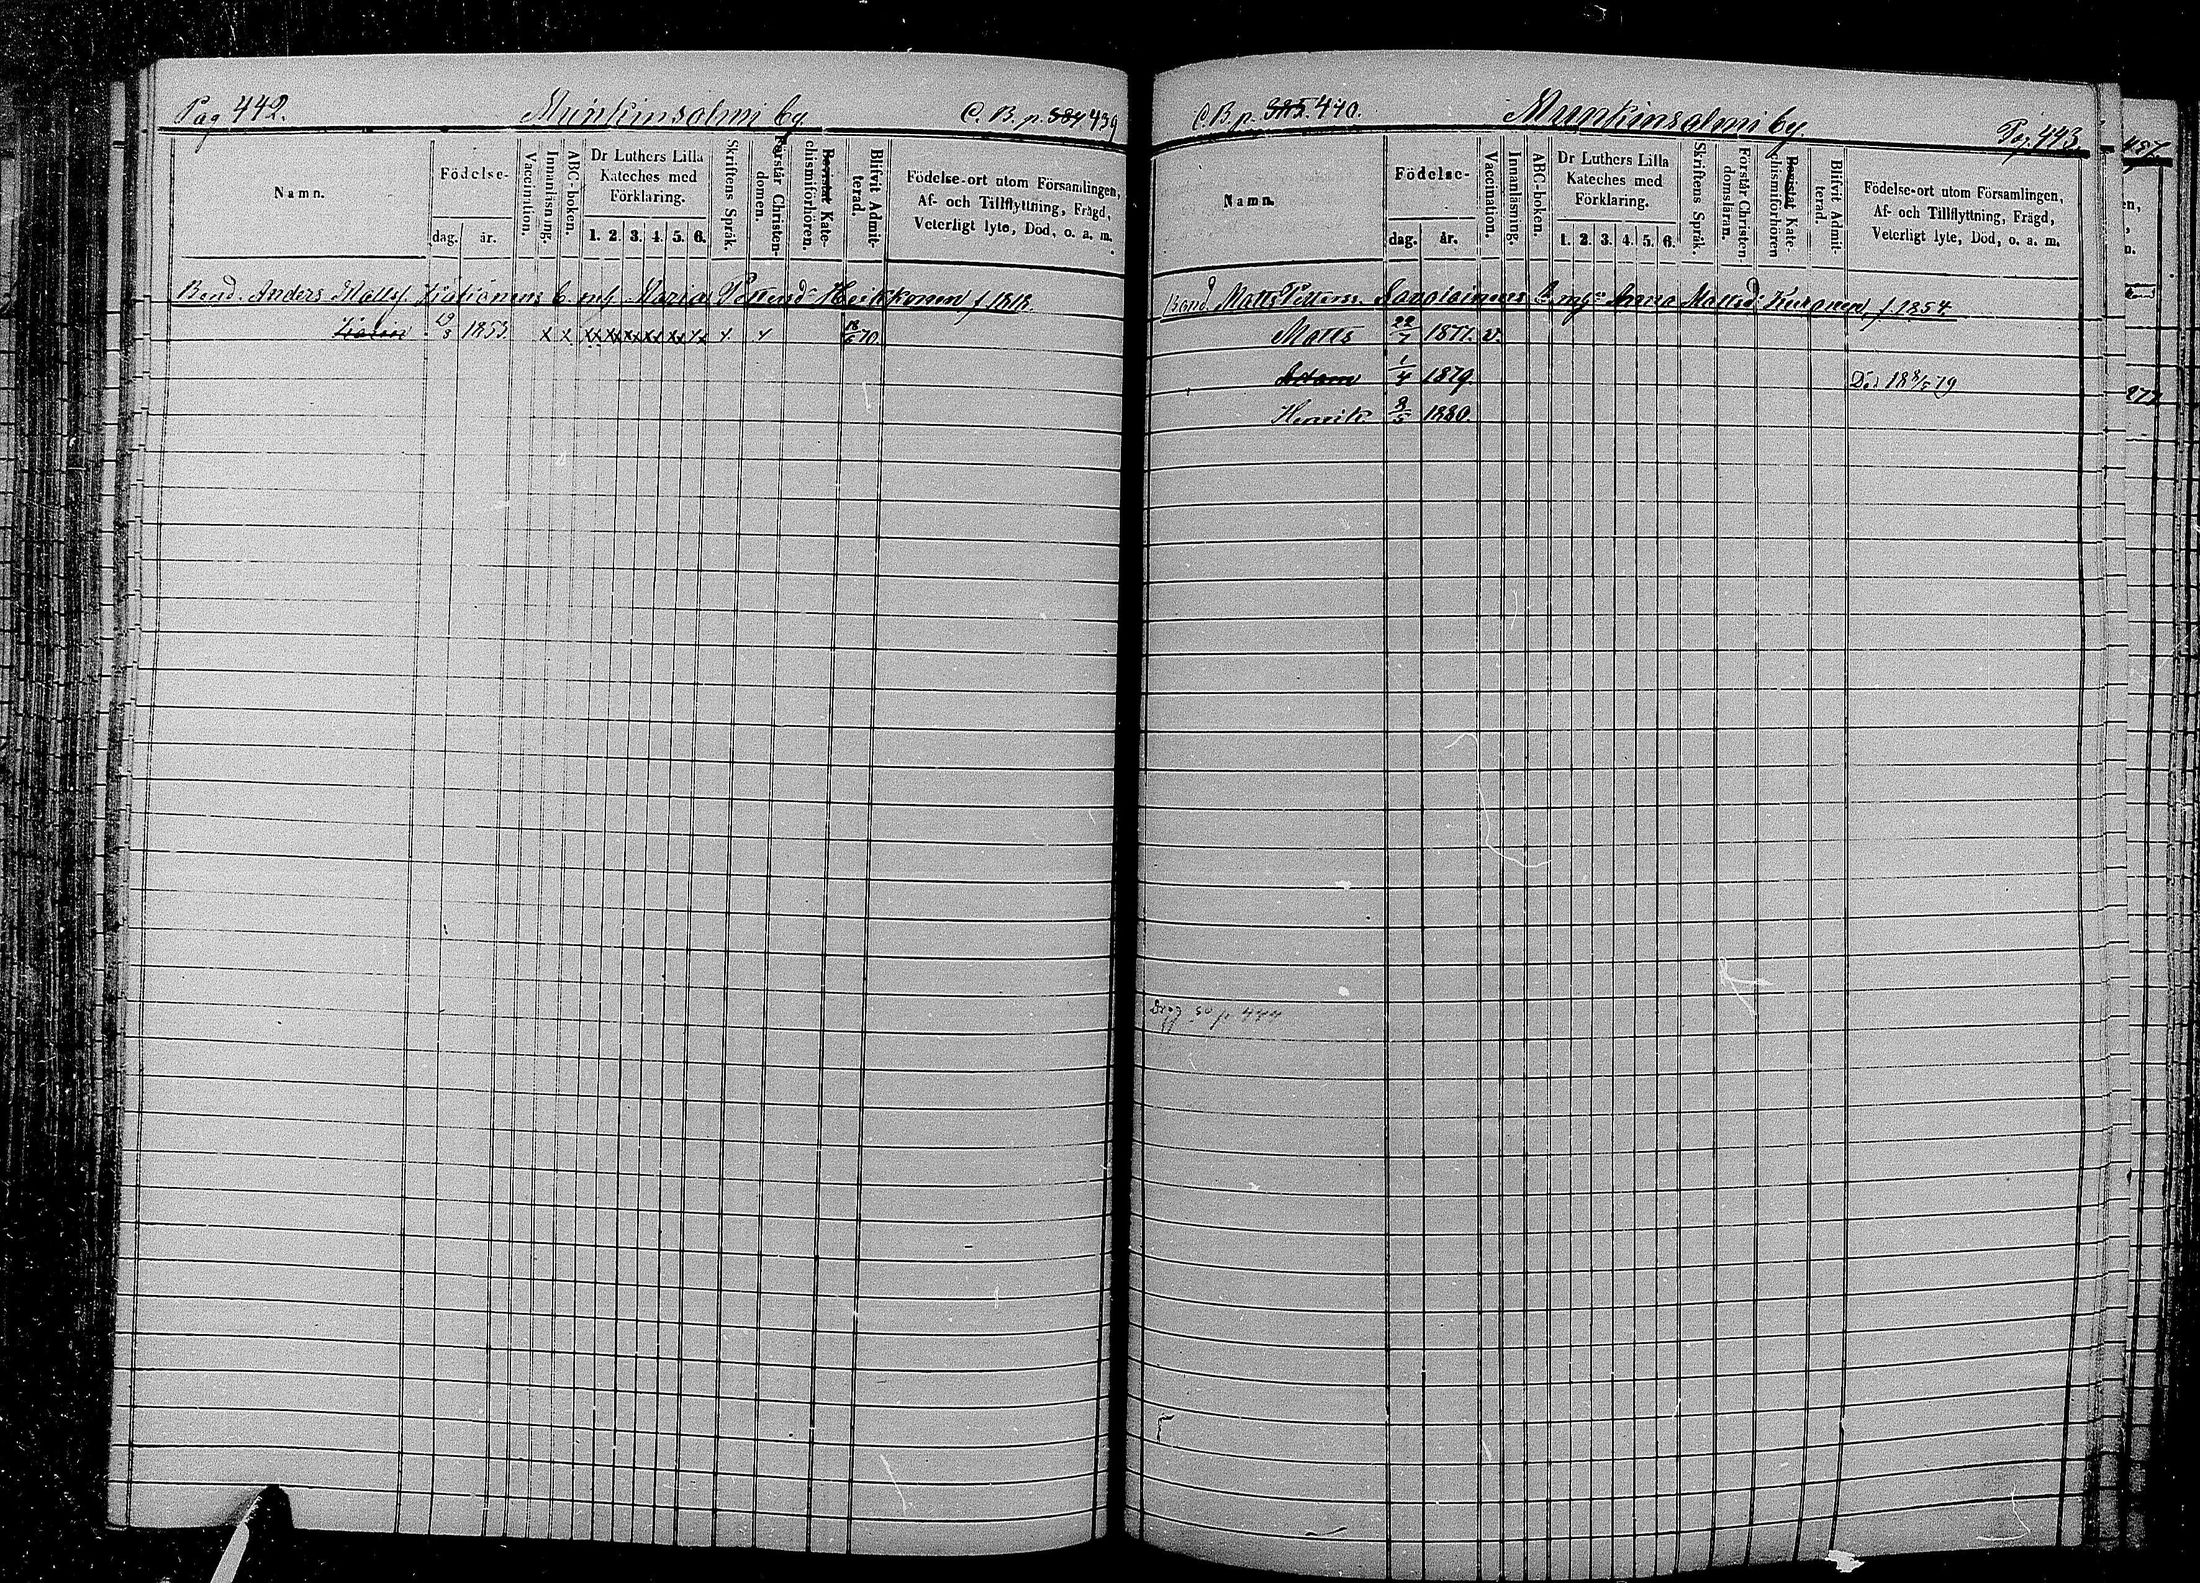 Pag 442. Munkinsalmi by C. B. p. 384 439
Namn. Födelse- dag. år. Vaccination. Innanläsning. ABC-boken. Dr Luthers Lilla Kateches med Förklaring. 1. 2. 3. 4. 5. 6. Skriftens Språk. Förstår Christendomen. Bevistat Katechismiförhören. Blifvit Admitterad. Födelse-ort utom Församlingen, Af- och Tillflyttning, Frägd, Veterligt lyte, Död, o. a. m.
Bond. Anders Matts. & mg. Maria Petters.d. Heikkonen f 1818.
1853. x x xx xx xx xx xx x x 18/6 70.
C. B. p. 385. 440. Munkinsalmi by Pag. 443.
Namn. Födelse- dag. år. Vaccination. Innanläsning. ABC-boken. Dr Luthers Lilla Kateches med Förklaring. 1. 2. 3. 4. 5. 6. Skriftens Språk. Förstår Christendomsläran. Bevistat Katechismiförhören Blifvit Admitterad. Födelse-ort utom Församlingen, Af- och Tillflyttning, Frägd, Veterligt lyte, Död, o. a. m.
Bond. Matts Petterss. Savolainens & mg. Anna Mattsd. Kuronen, f. 1854.
Matts 22/7 1877. v.
Adam 1/4 1879. Död 18 8/5 79
Henrik 8/5 1880.